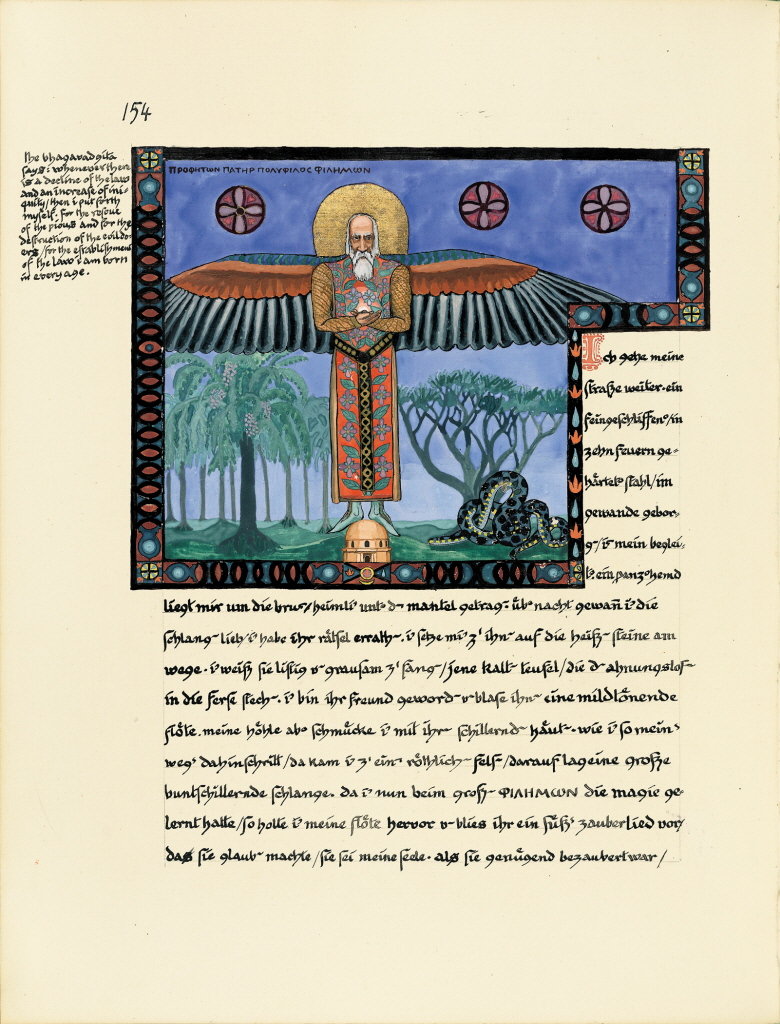 154
The bhagavadgita
says: whenever there
is a decline of the law
and an increase of ini-
quity/then i put forth
myself. for the rescue
of the pious and for the
destruction of the evildo-
ers/for the establishment
of the law i am born
in every age.
ΠΡΟΦΗΤΩΝ ΠΑΤΗΡ ΠΟΛΥΦΙΛΟΣ ΦΙΛΗΜΩΝ
Ich gehe meine
straße weiter. ein
feingeschliffen°/in
zehn feuern ge-
härtet° stahl/im
gewande gebor-
g-/ist mein beglei-
t°. ein panz°hemd
liegt mir um die brust/heimli unt° d- mantel getrag-. üb° nacht gewan i die
schlang- lieb/i habe ihr rätsel errath-. i setze mi z' ihn- auf die heiß- steine am
wege. i weiß sie listig u- grausam z' fang-/jene kalt- teufel/die d- ahnungslos-
in die ferse stech-. i bin ihr freund geword- u- blase ihn- eine mildtönende
flöte. meine höhle ab° schmücke i mit ihr- schillernd- häut-. wie i so mein-
weg- dahinschritt/da kam i z' ein- röthlich- fels/darauf lag eine große
buntschillernde schlange. da i nun beim groß- ΦΙΛΗΜΩΝ die magie ge-
lernt hatte/so holte i meine flöte hervor u- blies ihr ein süß- zauberlied vor/
das sie glaub- machte/sie sei meine seele. als sie genügend bezaubert war/